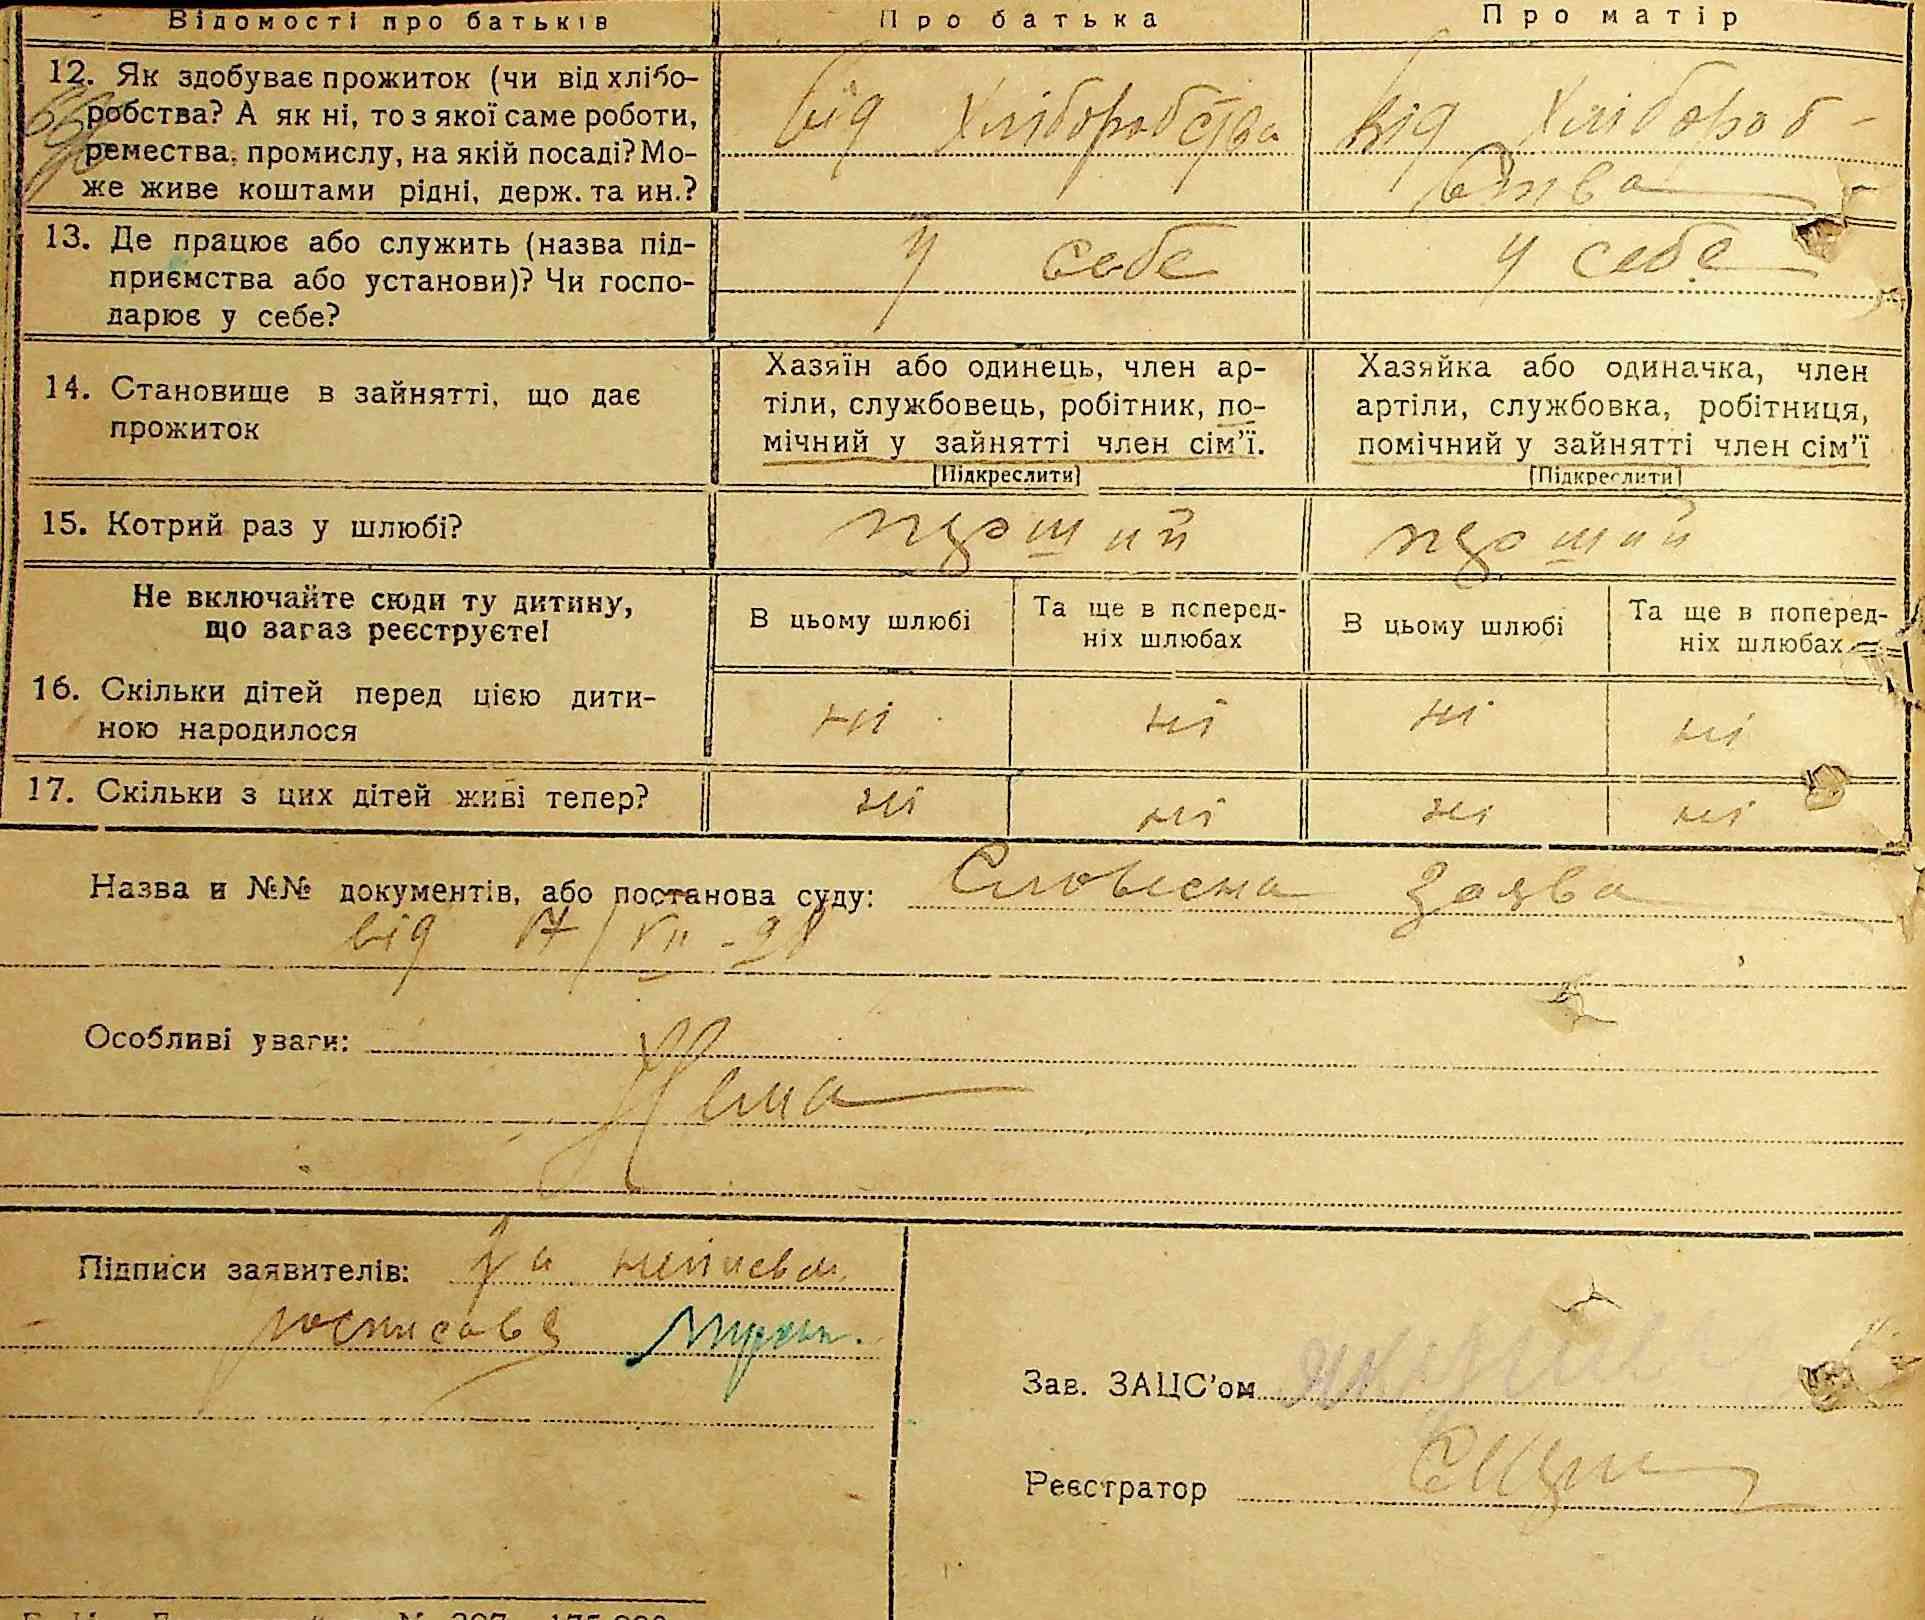 Відомості про батьків	Про батька	Про матір
12. Як здобуває прожиток (чи від хлібо-
робства? А як ні, то з якої саме роботи,
ремества, промислу, на якій посаді? Мо-
же живе коштами рідні, держ. та ин.?
від хліборобства
від хлібороб-
ства
13. Де працює або служить (назва під-
приємства або установи)? Чи госпо-
дарює у себе?
у себе	у себе
14. Становище в зайнятті, що дає
прожиток
Хазяїн або одинець, член ар-
тіли, службовець, робітник, по-
мічний у зайнятті член сім'ї.
[Підкреслити]
Хазяйка або одиначка, член
артіли, службовка, робітниця,
помічний у зайнятті член сім'ї
[Підкреслити]
15. Котрий раз у шлюбі?	перший	перший
Не включайте сюди ту дитину,
що зараз реєструєте!
В цьому шлюбі	Та ще в попеred-
ніх шлюбах	В цьому шлюбі	Та ще в поперед-
ніх шлюбах
16. Скільки дітей перед цією дити-
ною народилося
ні	ні	ні	ні
17. Скільки з цих дітей живі тепер?	ні	ні	ні	ні
Назва и №№ документів, або постанова суду: Словесна заява
від 17/VII-28
Особливі уваги:
Нема
Підписи заявителів: За
росписався
Зав. ЗАЦС'ом
Реєстратор